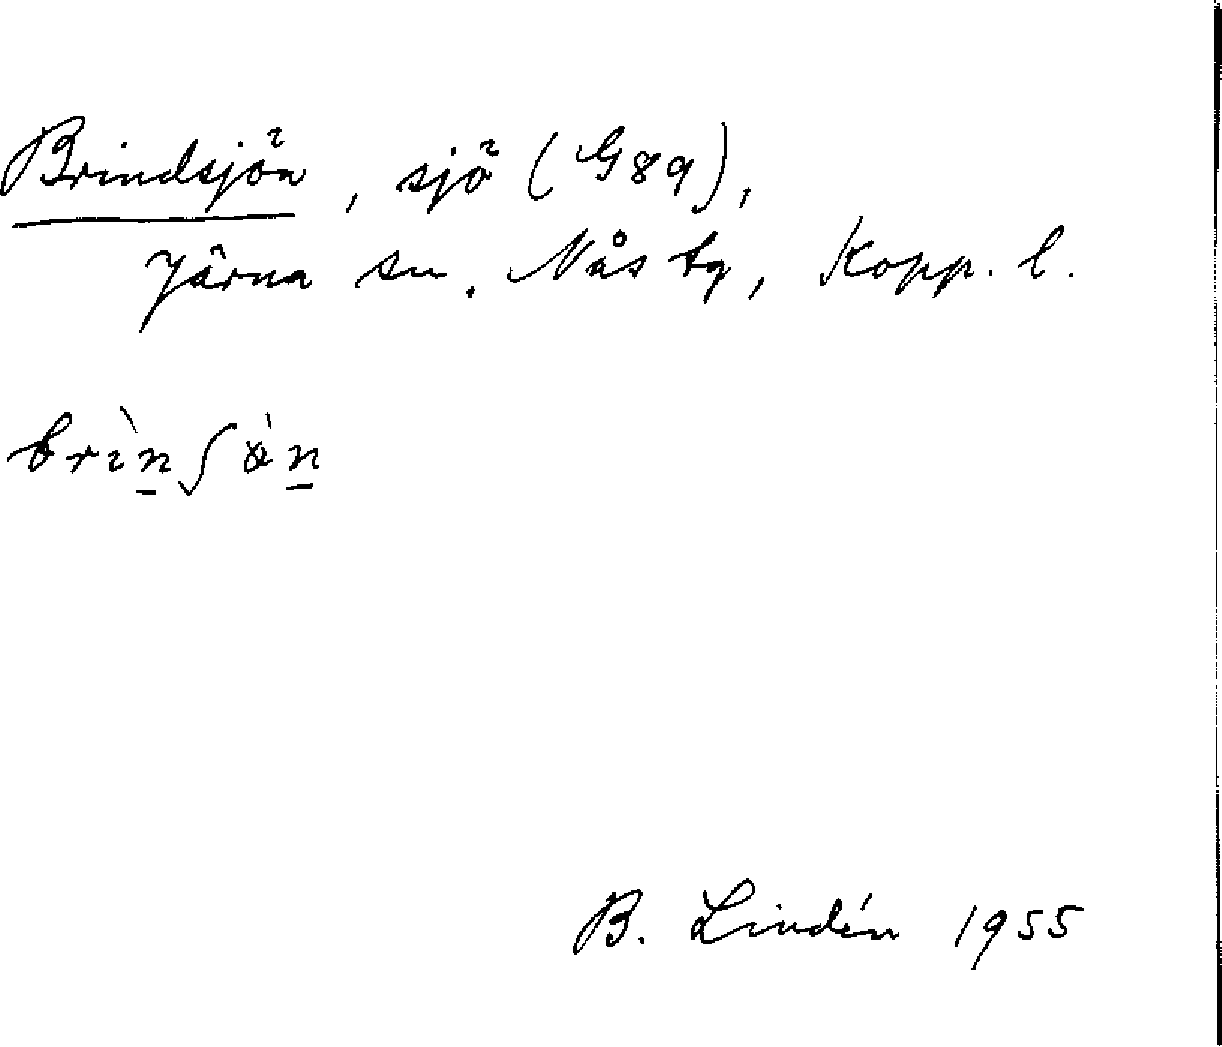 Brindsjön, sjö (G89),
Järna sn. Nås tg, Kopp. l.
B. Lindén 1955